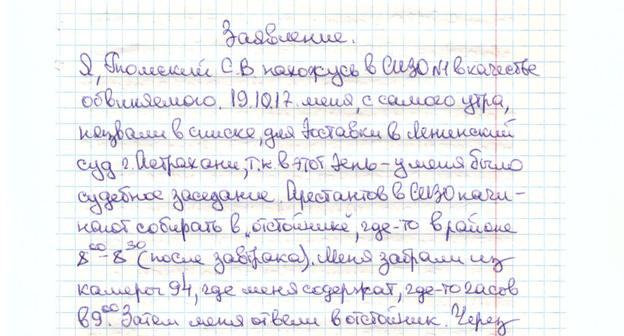 Заявление.
Я, Гномский С.В нахожусь в СИЗО №1 в качестве
обвиняемого. 19.10.17. меня, с самого утра,
назвали в списке, для доставки в Ленинский
суд г. Астрахани, т.к в этот день – у меня было
судебное заседание. Арестантов в СИЗО начи-
нают собирать в „отстойнике“, где-то в районе
8⁰⁰-8³⁰ (после завтрака). Меня забрали из
камеры 94, где меня содержат, где-то часов
в 9⁰⁰. Затем меня отвели в отстойник. Через